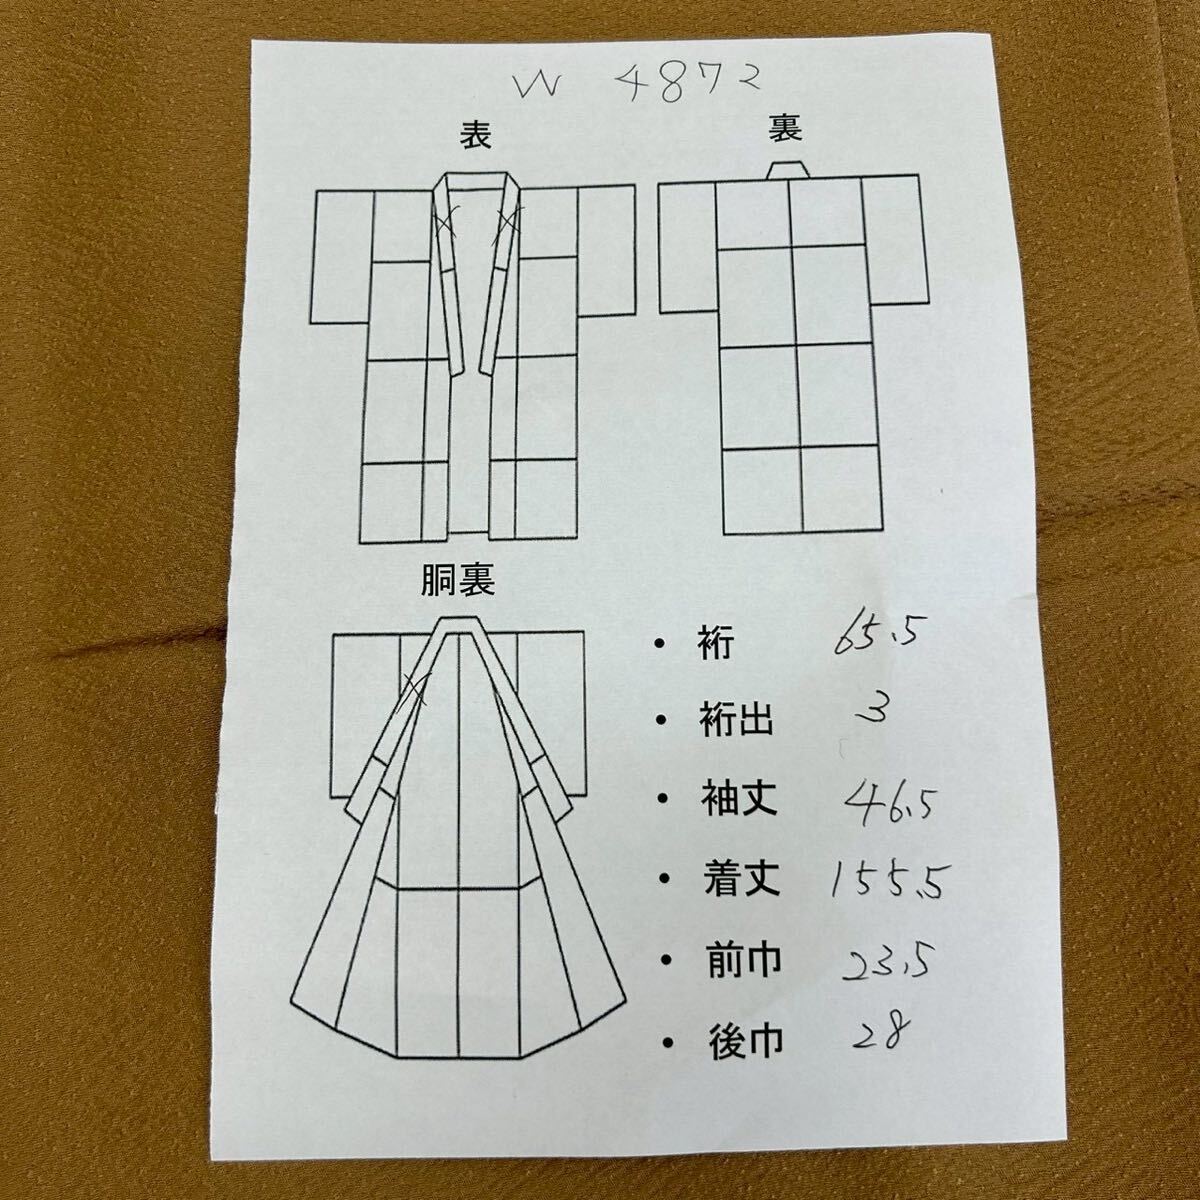 W 4872
表
裏
胴裏
・裄 65.5
・裄出 3
・袖丈 46.5
・着丈 155.5
・前巾 23.5
・後巾 28